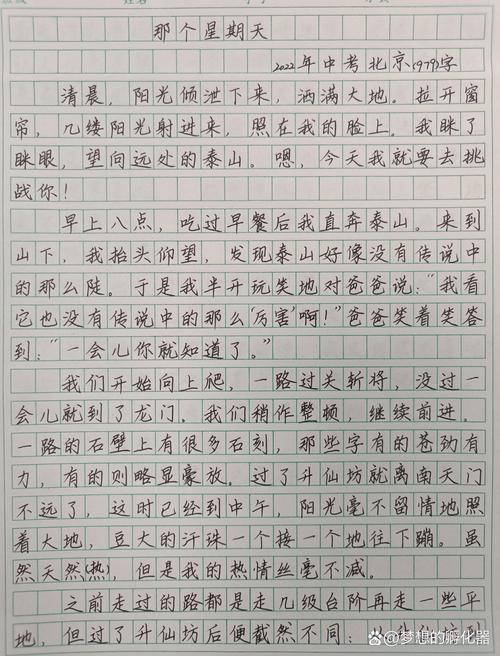 那个星期天
2022年中考北京(979)字
清晨，阳光倾泄下来，洒满大地。拉开窗
帘，几缕阳光射进来，照在我的脸上。我眯了
眯眼，望向远处的泰山。嗯，今天我就要去挑
战你！
早上八点，吃过早餐后我直奔泰山。来到
山下，我抬头仰望，发现泰山好像没有传说中
的那么陡。于是我半开玩笑地对爸爸说：“我看
它也没有传说中的那么‘厉害’啊！”爸爸笑着笑答
到：“一会儿你就知道了。”
我们开始向上爬，一路过关斩将，没过一
会儿就到了龙门。我们稍作整顿，继续前进。
一路的石壁上有很多石刻，那些字有的苍劲有
力，有的则略显豪放。过了升仙坊就离南天门
不远了，这时已经到中午，阳光毫不留情地照
着大地，豆大的汗珠一个接一个地往下蹦。虽
然天然(热)，但是我的热情丝毫不减。
之前走过的路都是走几级台阶再走一些平
地，但过了升仙坊后便截然不同：
@梦想的孵化器